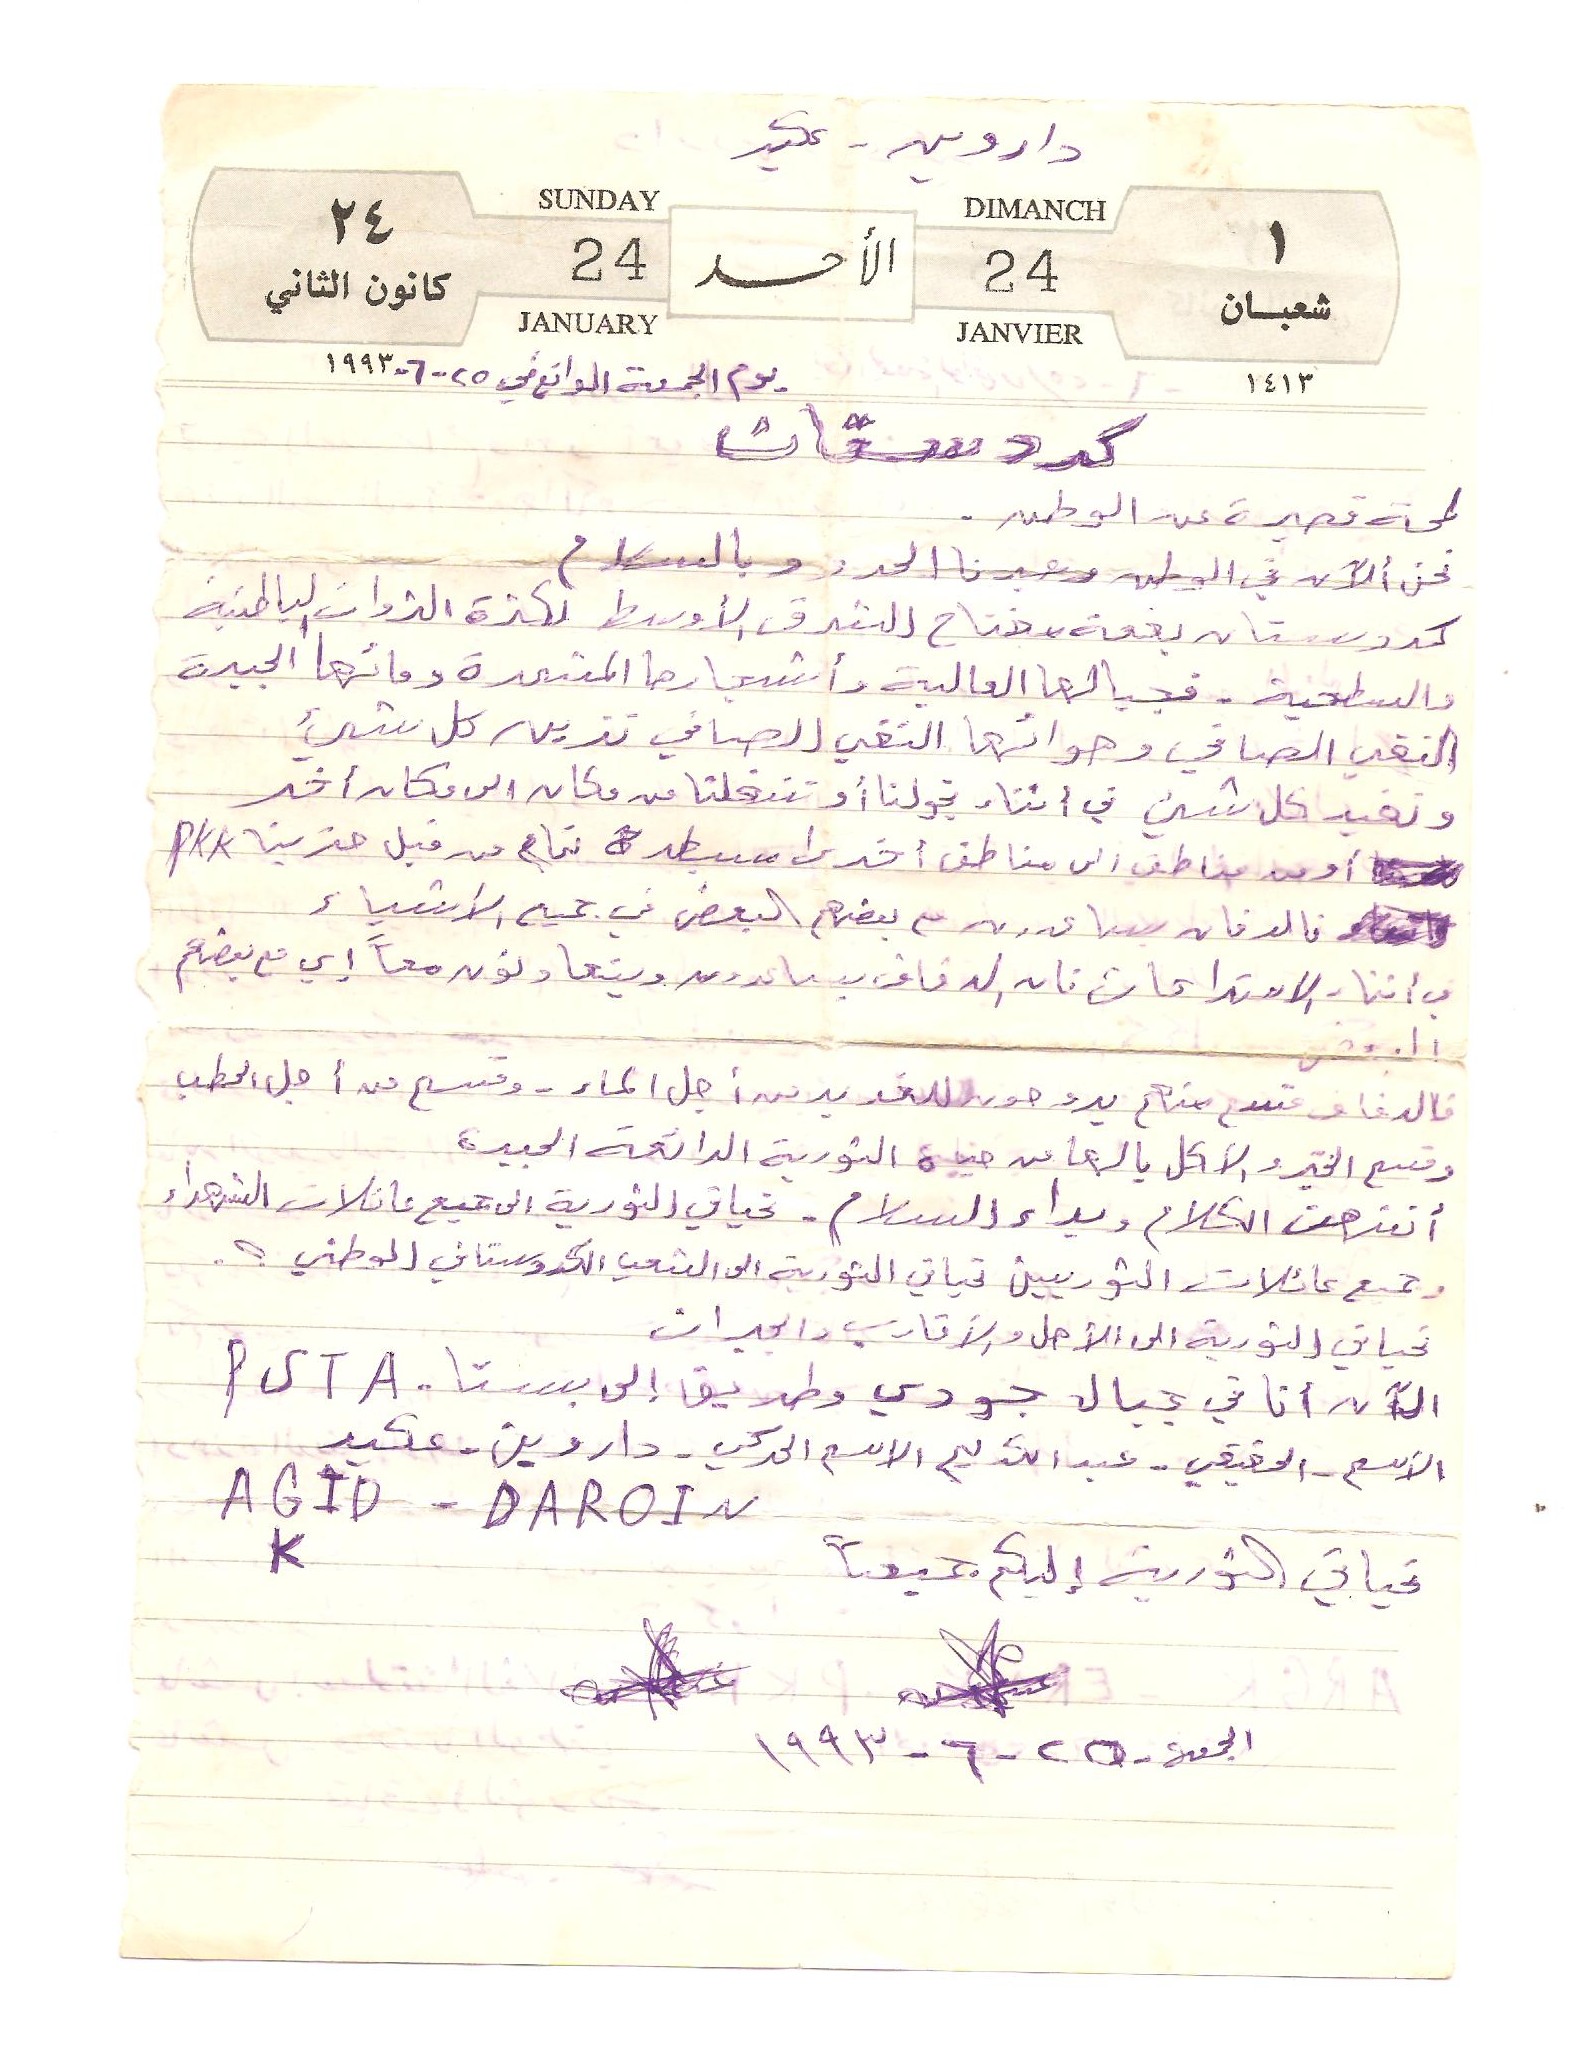 داروين - عكيد
٢٤
كانون الثاني
SUNDAY
24
JANUARY
الأحد
DIMANCH
24
JANVIER
١
شعبان
١٤١٣
يوم الجمعة الواقع في ٢٥-٦-١٩٩٣
كردستان
لمحة قصيرة عن الوطن .
نحن الآن في الوطن وعبرنا الحدود بالسلام
كردستان بقعة مفتاح الشرق الأوسط لكثرة الثروات الباطنية
والسطحية - فجبالها العالية وأشجارها المثمرة ومائها الجيدة
النقي الصافي وهوائها النقي الصافي تزين كل شيئ
وتغير كل شيئ في أثناء تجولنا أو تنقلنا من مكان الى مكان أخر
أو من مناطق الى مناطق أخرى مسيطرة تمام من قبل حزبنا PKK
فالرفاق يساعدون مع بعضهم البعض في جميع الأشياء
في أثناء الاستراحات فان الرفاق يساعدون ويتعاونون معاً إي مع بعضهم
البعض
فالرفاق قسم منهم يروحون للغدير من أجل الماء - وقسم من أجل الحطب
وقسم الخبز و الأكل يالها من حياة الثورية الرائعة الجيدة
أنتهت الكلام وبداء السلام - تحياتي الثورية الى جميع عائلات الشهداء
وجميع عائلات الثوريين تحياتي الثورية الى الشعب الكردستاني الوطني
تحياتي الثورية الى الأهل والأقارب والجيران
الآن أنا في جبال جودي وطريقنا إلى بستا - PSTA
الأسم - الحقيقي - عبد الكريم الاسم الحركي - داروين - عكيد
AGID - DAROIN
K
تحياتي الثورية إليكم جميعاً
الجمعة - ٢٥ - ٦ - ١٩٩٣